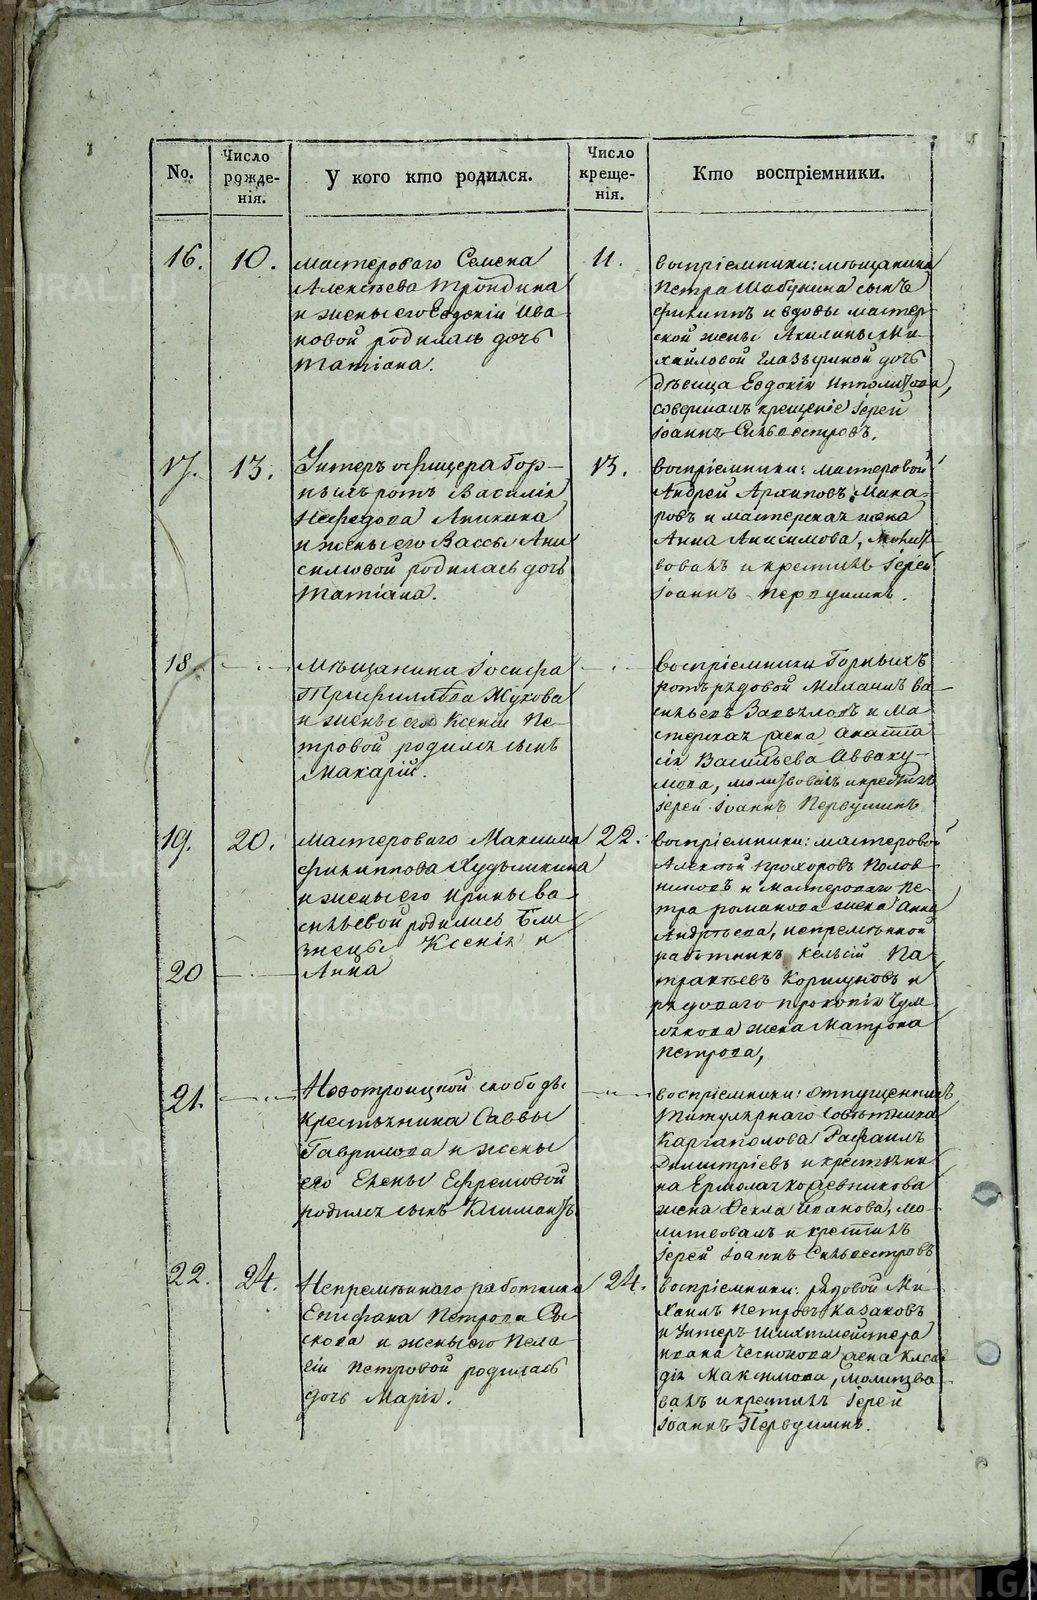 No.
Число рожде-нія.
У кого кто родился.
Число креще-нія.
Кто воспріемники.
16.
10.
мастероваго Семена
Алексѣева
и жены его Евдокіи Ива
новой родилась дочь
Татіана.
11.
воспріемники: мѣщанина
Петра Шабунина сынъ
Филиппъ и вдовы мастер
ской жены Акилины Ми
хайловой Глазыриной дочь
дѣвица Евдокія
совершалъ крещеніе Іерей
Іоаннъ Сильвестровъ.
17.
13.
Унтеръ офицера Гор-
ныхъ ротъ Василія
Нефедова Аникина
и жены его Вассы Ани
симовой родилась дочь
Татіана.
13.
воспріемники: мастеровой
Андрей Архиповъ Мака-
ровъ и мастерская жена
Анна Анисимова, молит-
вовалъ и крестилъ Іерей
Іоаннъ Первушинъ.
18.
Мѣщанина Іосифа
Трифиллова Жукова
и жены его Ксеніи Пе-
тровой родился сынъ
Макарій.
воспріемники Горныхъ
ротъ рядовой Михаилъ Ва-
сильевъ и ма-
стерская жена Анаста
сія Васильева Авваку-
мова, молитвовалъ и крестилъ
Іерей Іоаннъ Первушинъ
19.
20.
мастероваго Максима
Филиппова Худышкина
и жены его Ирины Ва-
сильевой родились бли
знецы Ксенія и
22.
воспріемники: мастеровой
Алексѣй Прохоровъ Полов
никовъ и мастероваго Пе-
тра Романова жена Анна
Андреева, непремѣнной
работникъ Пa
20
Анна
тракѣевъ Коршуновъ и
рядоваго Прокопія
жена Матрона
Петрова,
21.
Новотроицкой слободы
крестьянина Саввы
Гаврилова и жены
его Елены Ефремовой
родился сынъ Климантъ.
воспріемники: отпущенникъ
Титулярнаго Совѣтника
Каргаполова Рафаилъ
Димитріевъ и крестьяни
на Ермолая
жена Фекла Иванова, мо-
литвовалъ и крестилъ
Іерей Іоаннъ Сильвестровъ
22.
24.
Непремѣннаго работника
Епифана Петрова Сы
скова и жены его Пела
гіи Петровой родилась
дочь Марія.
24.
воспріемники: рядовой Ми
хаилъ Петровъ Казаковъ
и Унтеръ Шихтмейстера
Ивана Чеснокова жена Клав
дія Максимова, молитво
валъ и крестилъ Іерей
Іоаннъ Первушинъ.
METRIKI.GASO-URAL.RU